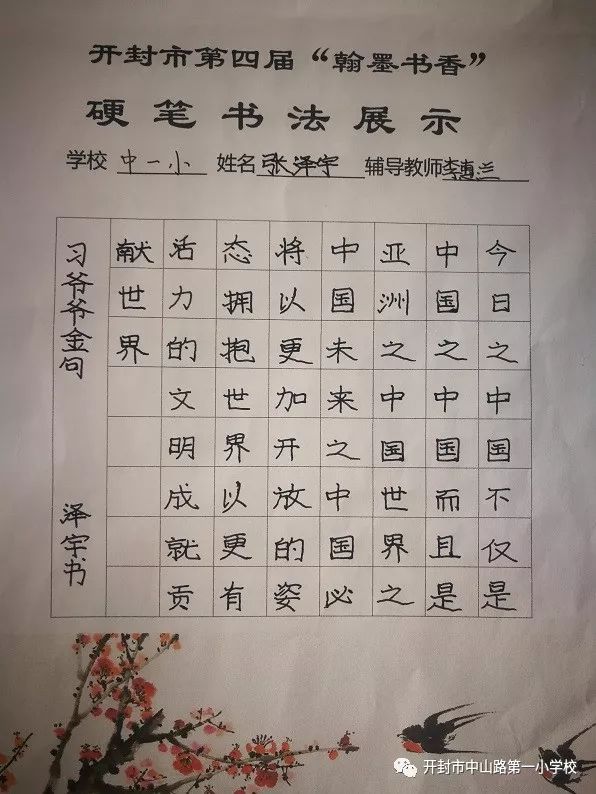 开封市第四届“翰墨书香”
硬笔书法展示
学校 中一小 姓名 张泽宇 辅导教师 李惠兰
今日之中国不仅是
中国之中国而且是
亚洲之中国世界之
中国未来之中国必
将以更加开放的姿
态拥抱世界以更有
活力的文明成就贡
献世界
习爷爷金句 泽宇书
开封市中山路第一小学校